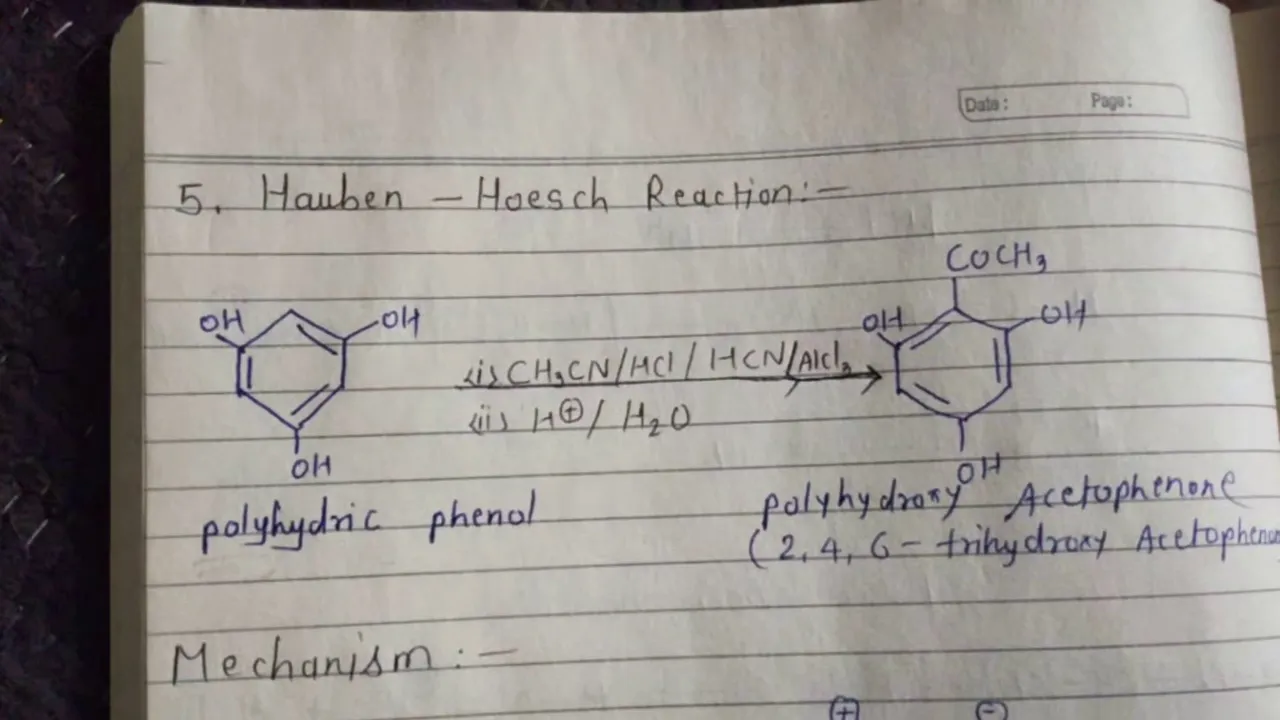 Date: Page:
5. Hauben - Hoesch Reaction:-
COCH3
OH OH OH OH
(i) CH3CN/HCl/ HCN/AlCl3
(ii) H⊕/ H2O
OH OH
polyhydric phenol polyhydroxy Acetophenone
(2,4,6- trihydroxy Acetophenon
Mechanism:-
⊕ ⊖